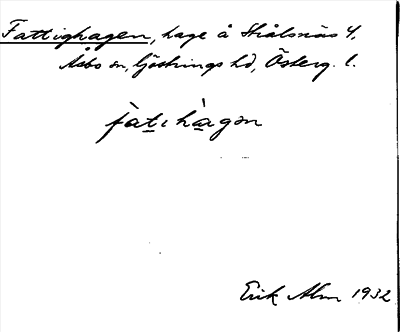 Fattighagen, hage å Strålsnäs 4.
Åsbo sn, Göstrings hd, Österg. l.
fàtıhàgən
Erik Alm 1932